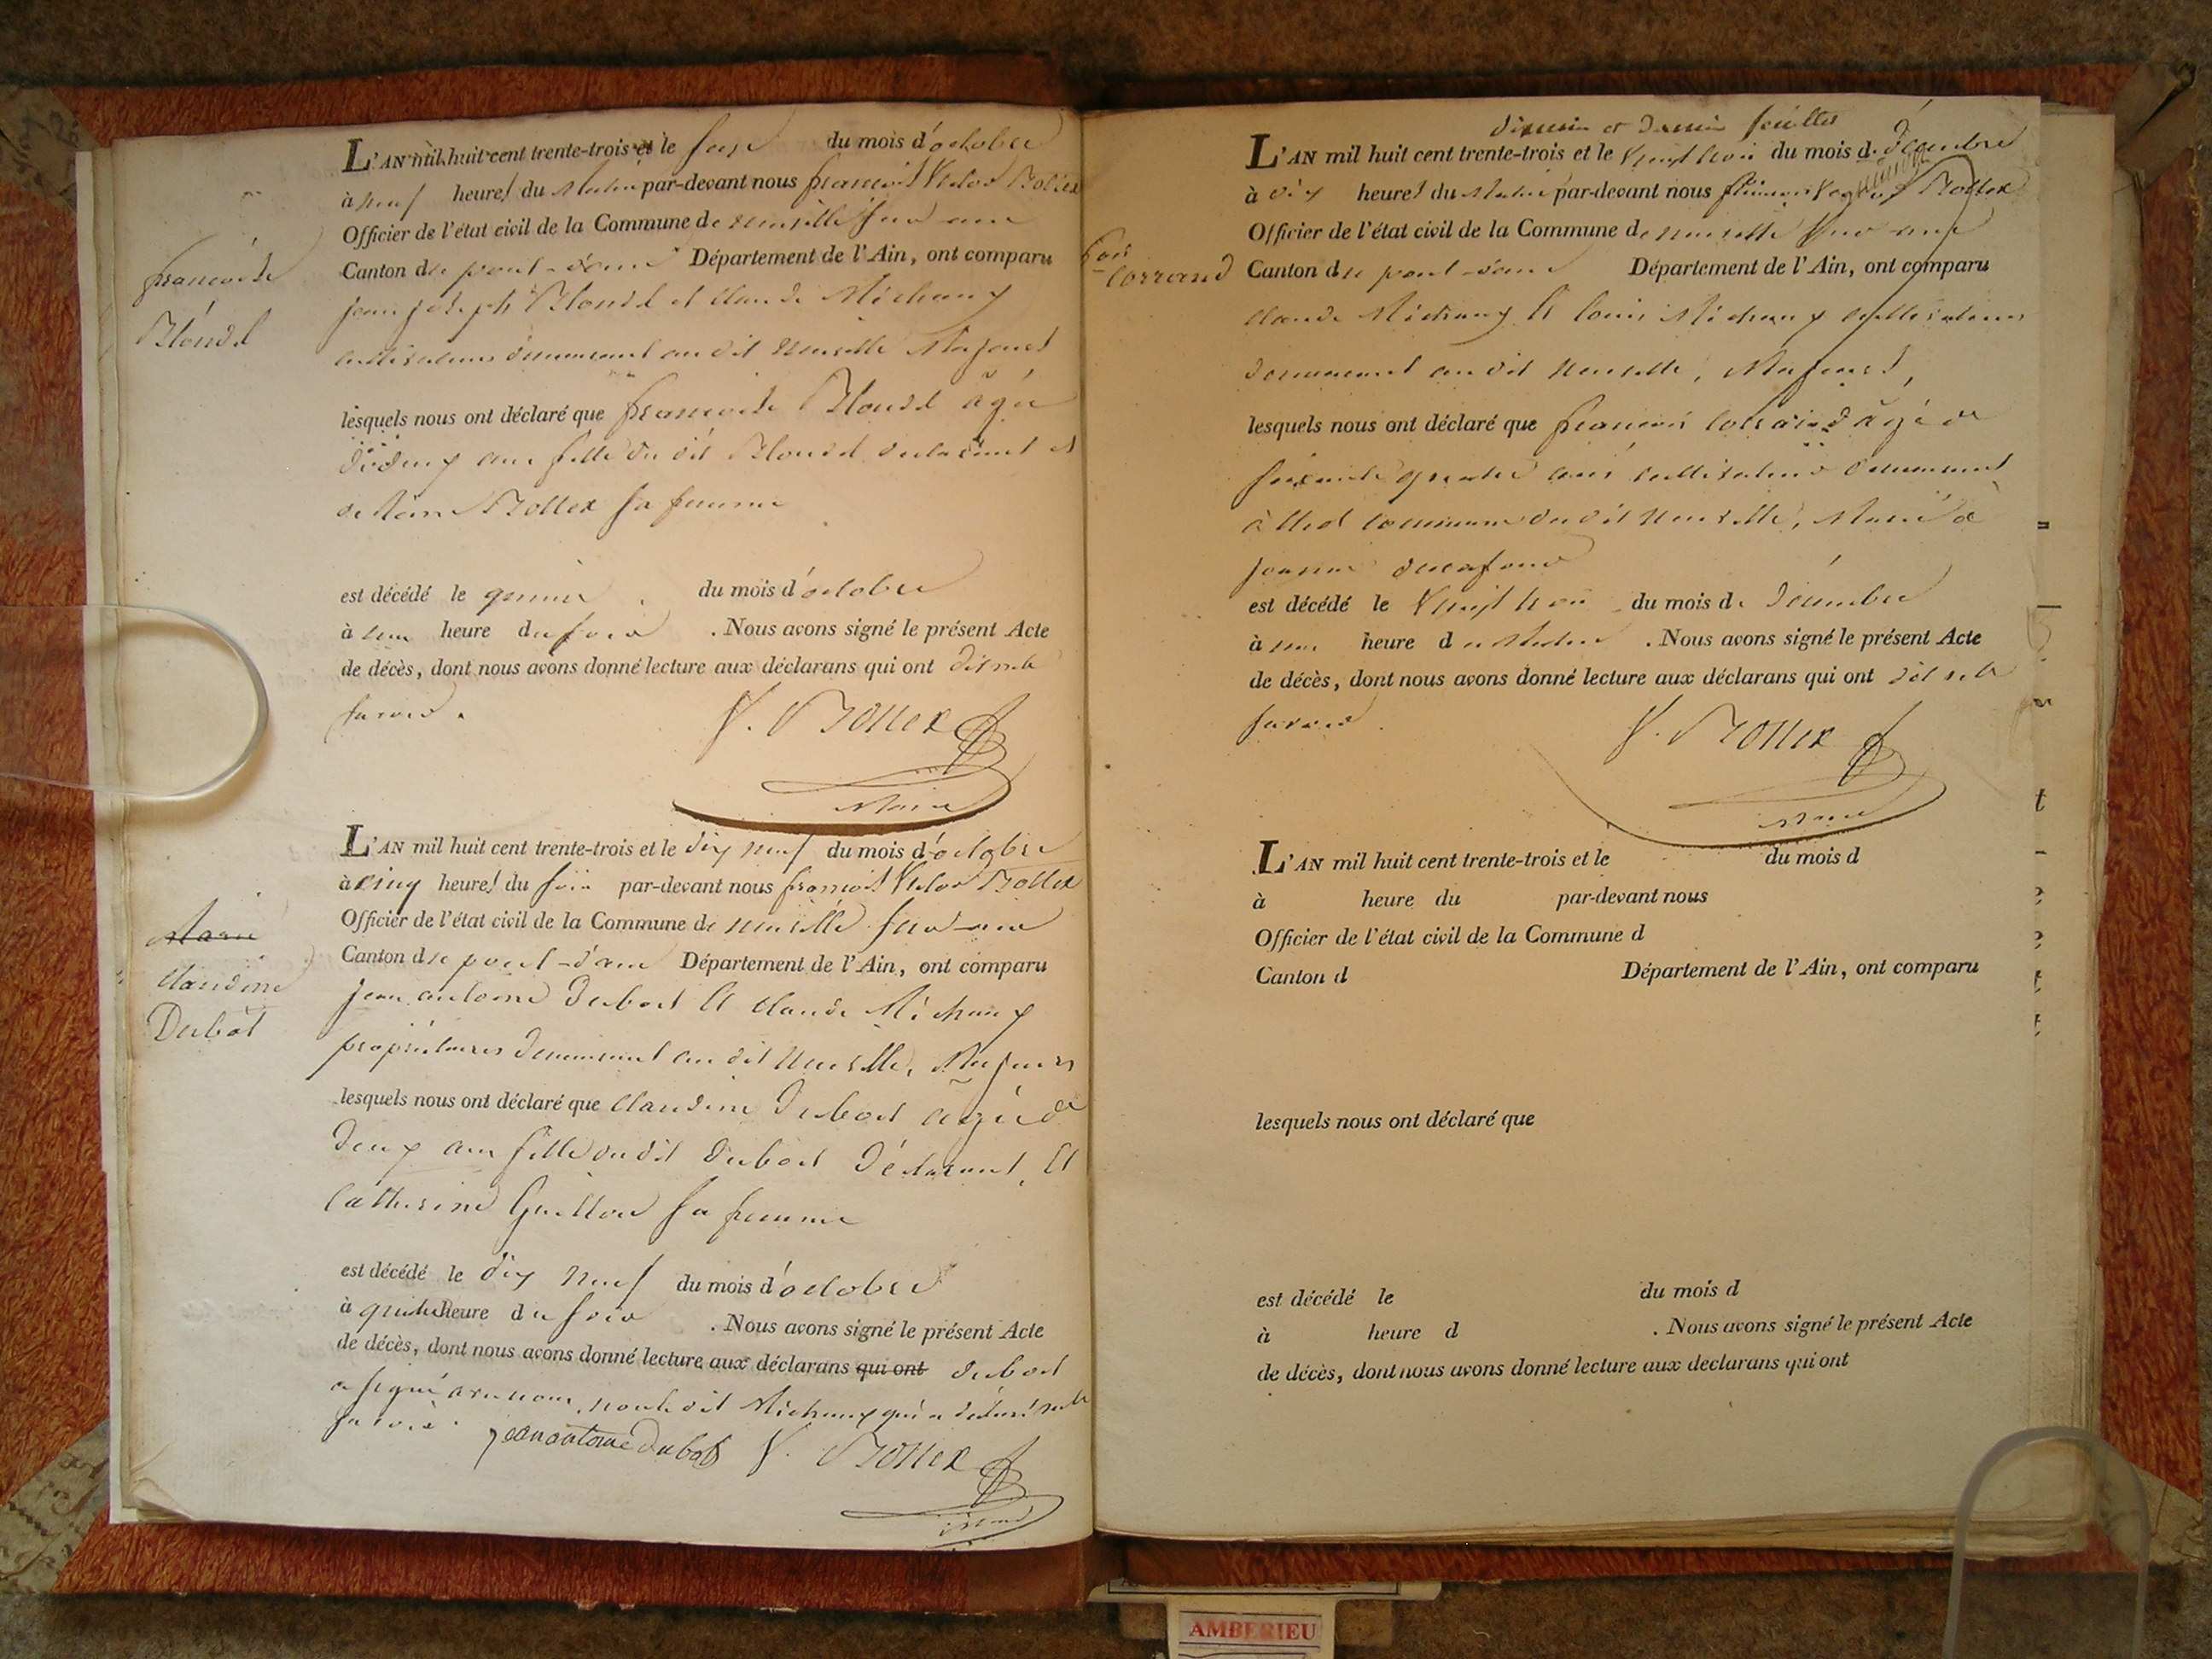 françoise
Blondel
L'AN mil huit cent trente-trois et le seize du mois d'octobre
à neuf heures du Matin par-devant nous françois Victor Bollex
Officier de l'état civil de la Commune de neuville sur ain
Canton de pont-d'ain Département de l'Ain, ont comparu
jean joseph Blondel et Claude Michaux
cultivateurs demeurant au dit neuville Majeurs
lesquels nous ont déclaré que françoise Blondel âgée
ans fille du dit Blondel declarant et
de Bollex sa femme
est décédé le quinze du mois d'octobre
à une heure du soir . Nous avons signé le présent Acte
de décès, dont nous avons donné lecture aux déclarans qui ont dit ne le
savoir.
V. Bollex
Maire
Marie
Claudine
Dubôt
L'AN mil huit cent trente-trois et le dix neuf du mois d'octobre
à cinq heures du soir par-devant nous françois Victor Bollex
Officier de l'état civil de la Commune de neuville sur-ain
Canton de pont-d'ain Département de l'Ain, ont comparu
jean antoine Dubost et Claude Michaux
propriétaires demeurant au dit neuville, Majeurs
lesquels nous ont déclaré que Claudine Dubost âgée de
deux ans fille du dit Dubost déclarant, et
Catherine sa femme
est décédé le dix neuf du mois d'octobre
à quatre heure du soir . Nous avons signé le présent Acte
de décès, dont nous avons donné lecture aux déclarans qui ont Dubost
a signé avec nous, non le dit Michaux qui a déclaré ne le
savoir.
jean antoine Dubost V. Bollex
Maire
dixieme et dernier feuillet
fois
Corrand
L'AN mil huit cent trente-trois et le vingt trois du mois de décembre
à dix heures du Matin par-devant nous Bollex
Officier de l'état civil de la Commune de neuville sur-ain
Canton de pont-d'ain Département de l'Ain, ont comparu
Claude Michaux et louis Michaux cultivateurs
demeurant au dit neuville, Majeurs,
lesquels nous ont déclaré que françois Corrand âgé de
soixante quatre ans cultivateur demeurant
à commune du dit neuville, Marié à
jeanne
est décédé le vingt trois du mois de décembre
à une heure du Matin . Nous avons signé le présent Acte
de décès, dont nous avons donné lecture aux déclarans qui ont dit ne le
savoir.
V. Bollex
Maire
L'AN mil huit cent trente-trois et le du mois d
à heure du par-devant nous
Officier de l'état civil de la Commune d
Canton d Département de l'Ain, ont comparu
lesquels nous ont déclaré que
est décédé le du mois d
à heure d . Nous avons signé le présent Acte
de décès, dont nous avons donné lecture aux declarans qui ont
AMBERIEU